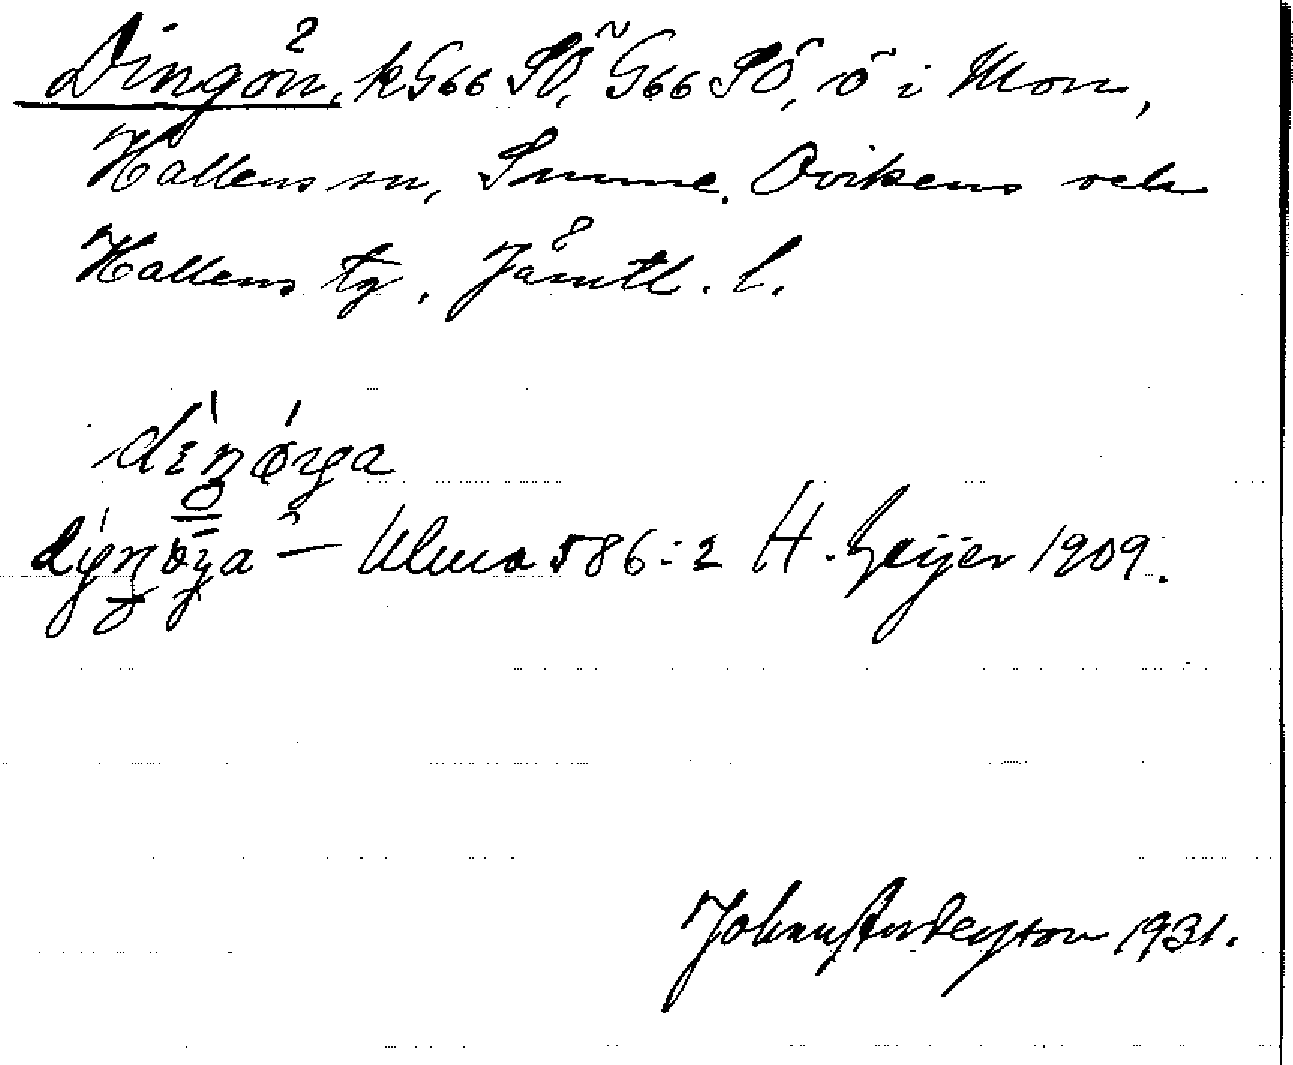 Dingön, k G66 SÖ, G66 SÖ, ö i Mon,
Hallens sn, Sunne, Ovikens och
Hallens tg, Jämtl. l.
Ulma 586:2 H. Geijer 1909.
John Andersson 1931.